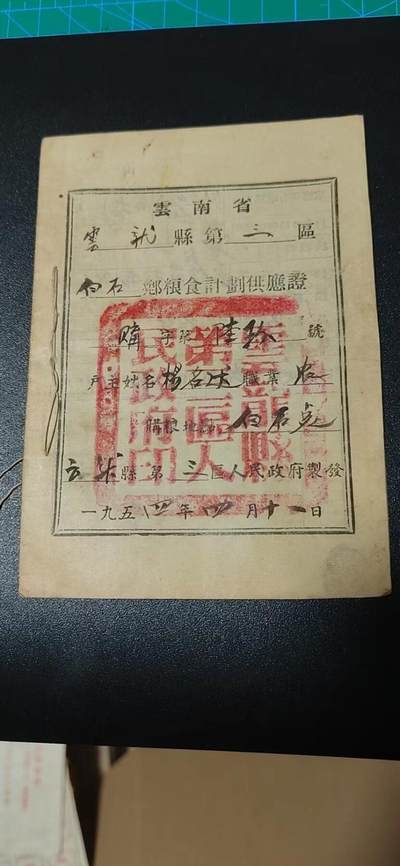 雲南省
雲龍縣第三區
白石鄉糧食計劃供應證
購字第陸 號
戶主姓名楊名 職業农
購糧地點白石
云龙縣第三區人民政府製發
一九五四年四月十一日
雲龍縣第三區人民政府印